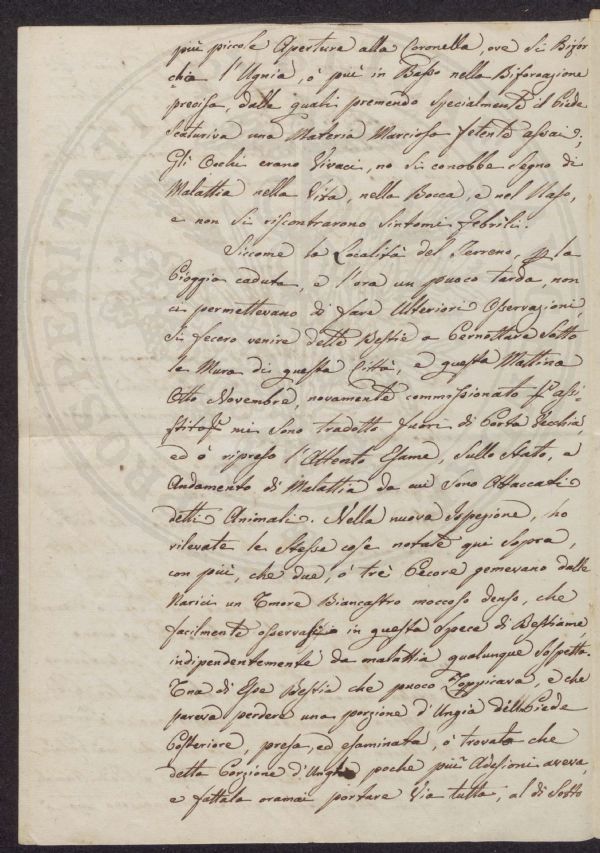 più piccole Apertura alla Coronella, ove si Bifor
chia l'Ugnia, o più in Basso nella Biforcazione
precisa, dalle quali premendo specialmente il Piede
scaturiva una Materia Marciosa fetente assai;
Gli Occhi erano Vivaci, no si conobbe segno di
Malattia nella Vita, nella Bocca, e nel Naso,
e non si riscontrarono Sintomi Febrili.
Siccome la Località del Terreno, la
Pioggia caduta, e l'ora un puoco tarda, non
ci permettevano di fare Ulteriori Osservazioni,
Si fecero venire dette Bestie a Pernottare Sotto
le Mura di questa Città, e questa Mattina
Otto Novembre, novamente commissionato
mi sono tradotto fuori di Porta Vecchia,
ed ò ripreso l'Attento Esame, Sullo Stato, e
Andamento di Malattia da cui sono Attaccati
detti Animali. Nella nuova Ispezione, ho
rilevate le Stesse cose notate qui sopra,
con più, che due, o trè Pecore gemevano dalle
Narici un Umore Biancastro moccoso denso, che
facilmente osservasi in questa Spece di Bestiame,
indipendentemente da malattia qualunque sospetta.
Una di Esse Bestia che puoco Zoppicava, e che
pareva perdere una porzione d'Ungia del Piede
Posteriore, presa, ed esaminata, ò trovato che
detta Porzione d'Ungia poche più Adesioni aveva,
e fattala oramai portare Via tutta, al di Sotto
PROSPERITATI